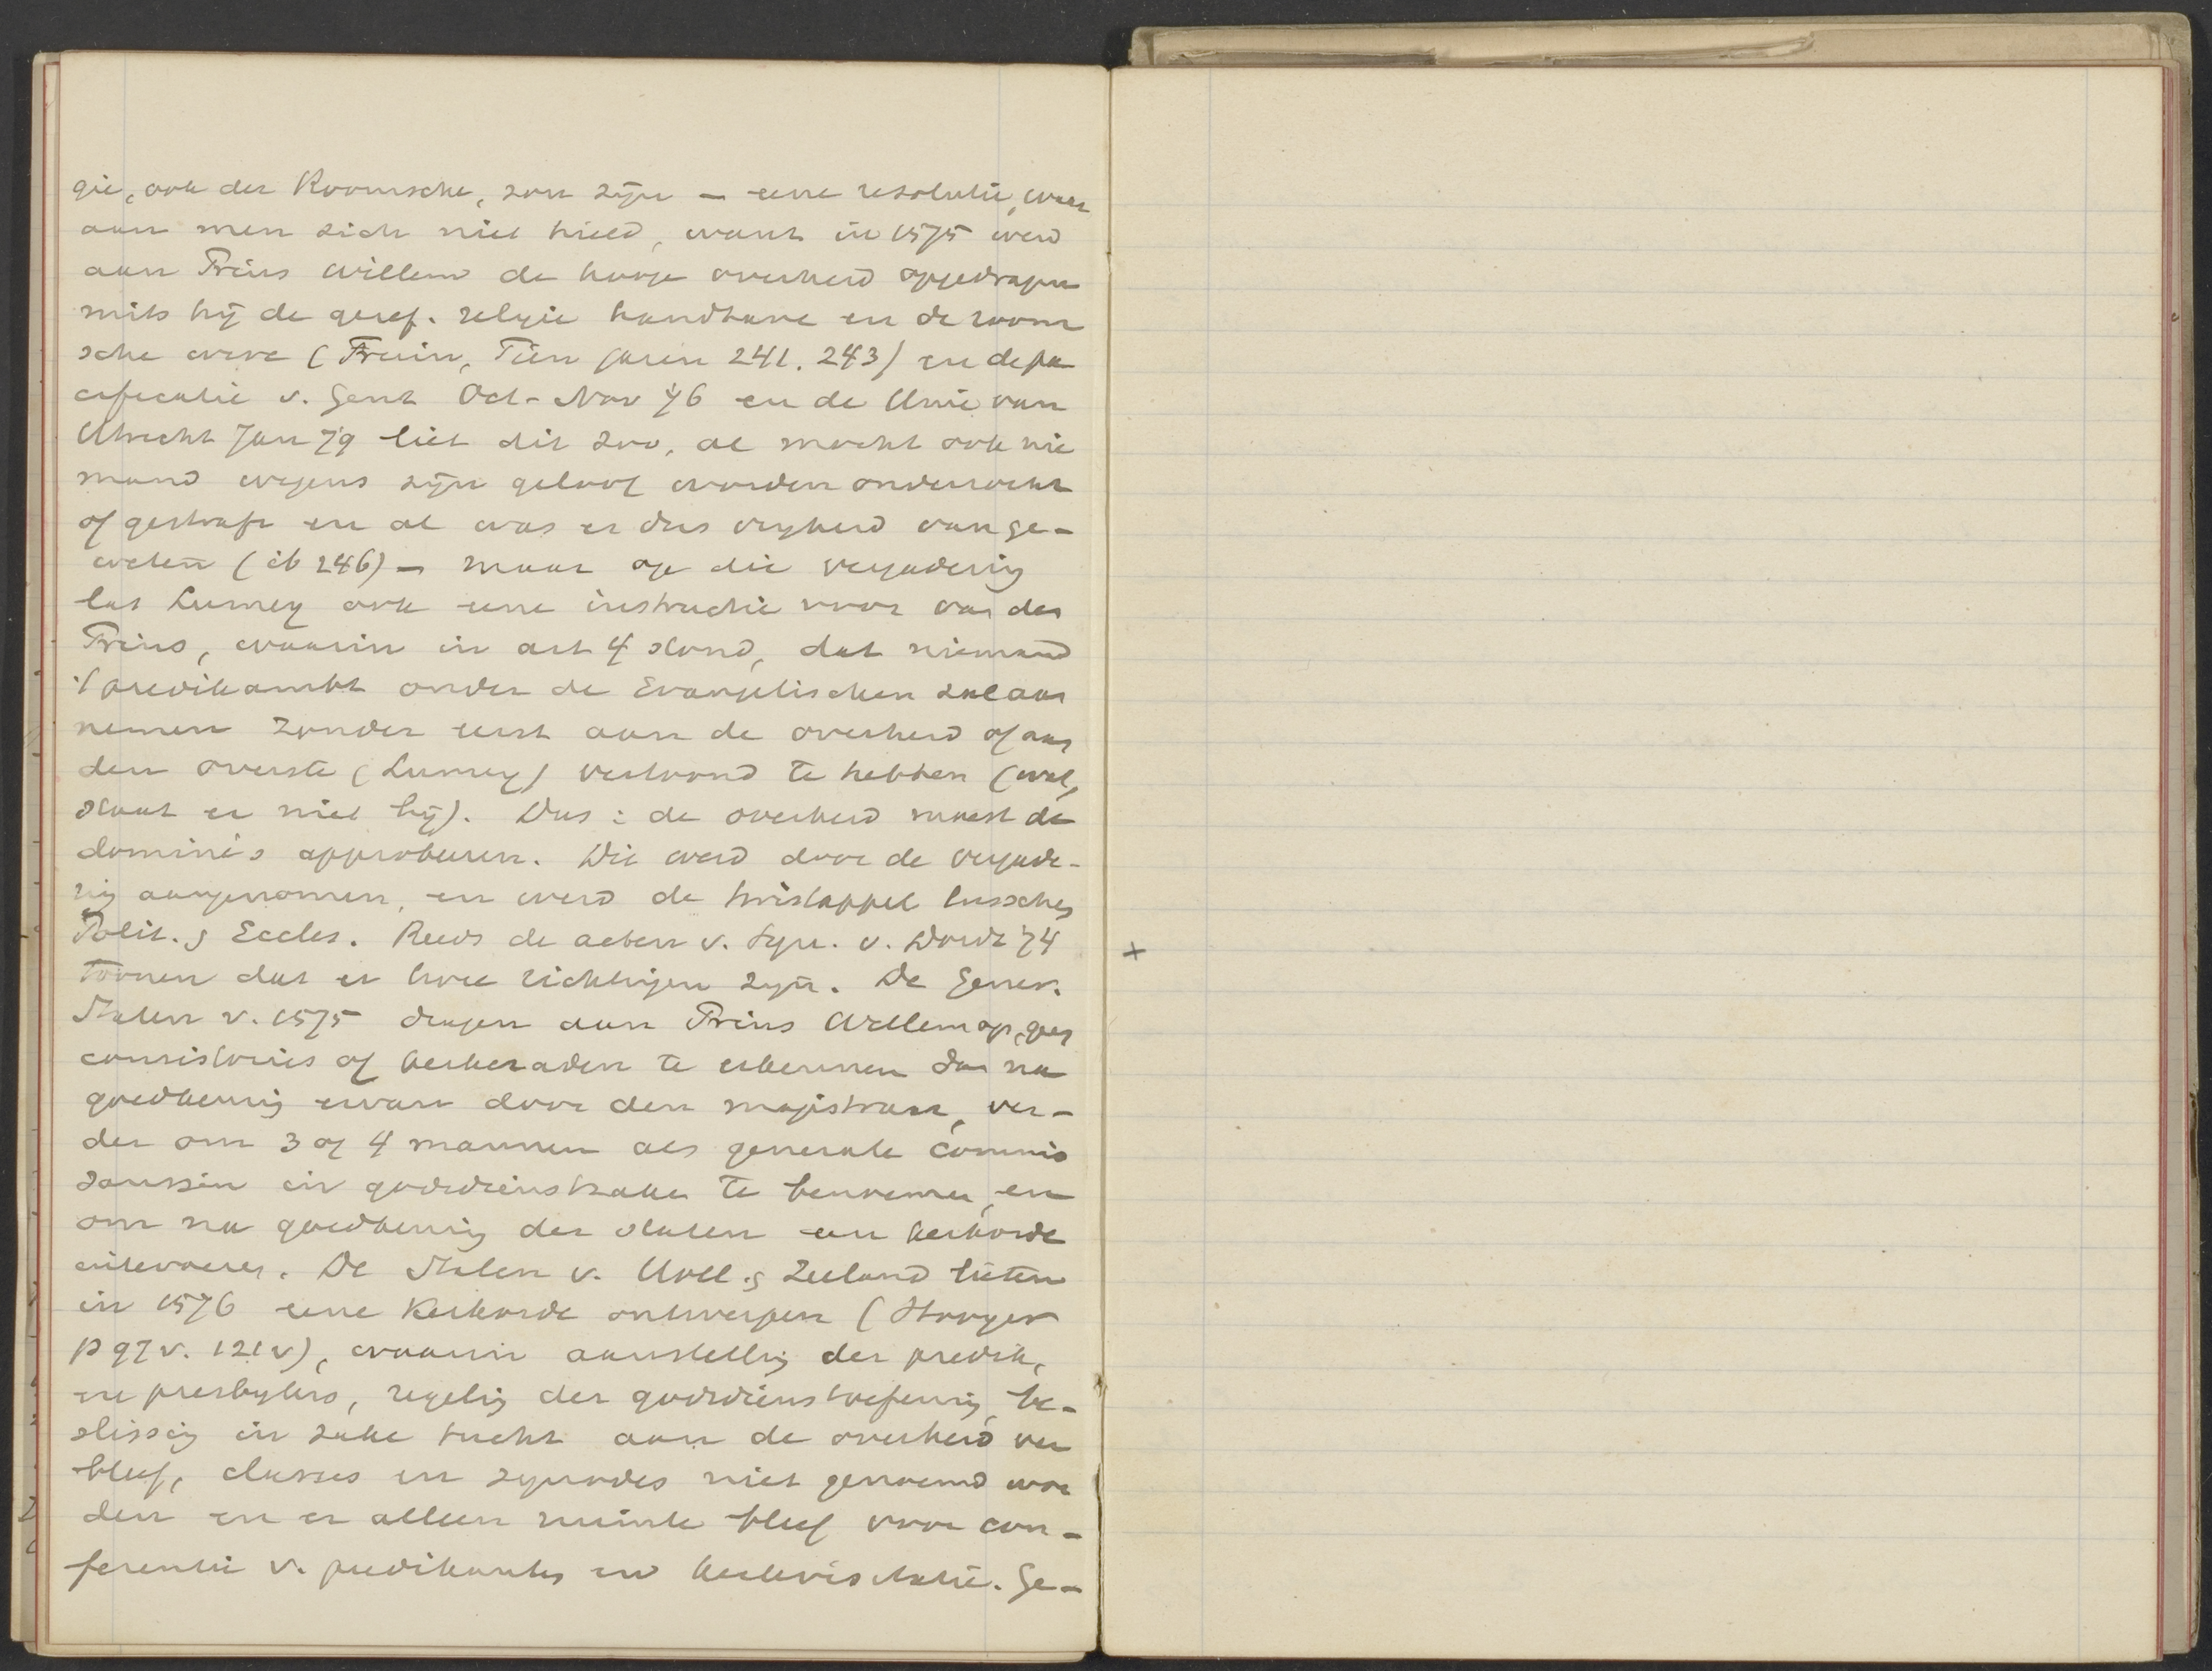 gie, ook der Roomsche, zou zijn – eene resolutie, waar
aan men zich niet hield, want in 1575 werd
aan Prins Willem de hooge overheid opgedragen
mits hij de geref. religie handhave en de room
sche were (Fruin, Tien jaren 241. 243) en de pa
cificatie v. Gent Oct-Nov 76 en de Unie van
Utrecht Jan 79 liet dit zoo, al mocht ook nie
mand wegens zijn geloof worden onderzocht
of gestraft en al was er dus vrijheid van ge-
weten (ib 246) – maar op die vergadering
las Lumey ook eene instructie voor van den
Prins, waarin in art 4 stond, dat niemand
't predikambt onder de Evangelischen zal aan
nemen zonder eerst aan de overheid of aan
den overste (Lumey) vertoond te hebben (wat,
staat er niet bij). Dus: de overheid moest de
dominé's approbeeren. Dit werd door de vergade-
ring aangenomen, en werd de twistappel tusschen
Polit. & Eccles. Reeds de acten v. Syn. v. Dordt 74
toonen dat er twee richtingen zijn. De Gener.
Staten v. 1575 dragen aan Prins Willem op, geen
consistories of kerkeraden te erkennen dan na
goedkeuring ervan door den magistraat, ver-
der om 3 of 4 mannen als generale commis
sarissen in godsdienstzaken te benoemen, en
om na goedkeuring der staten een kerkorde
intevoeren. De Staten v. Holl. & Zeeland lieten
in 1576 eene Kerkorde ontwerpen (Hooyer
p 97v. 121v), waarin aanstelling der predik.
en presbyters, regeling der godsdienstoefening, be-
slissing in zake tucht aan de overheid ver
bleef, classes en synodes niet genoemd wor
den en er alleen ruimte bleef voor con-
ferentie v. predikanten en kerkvisitatie. Ge-
+